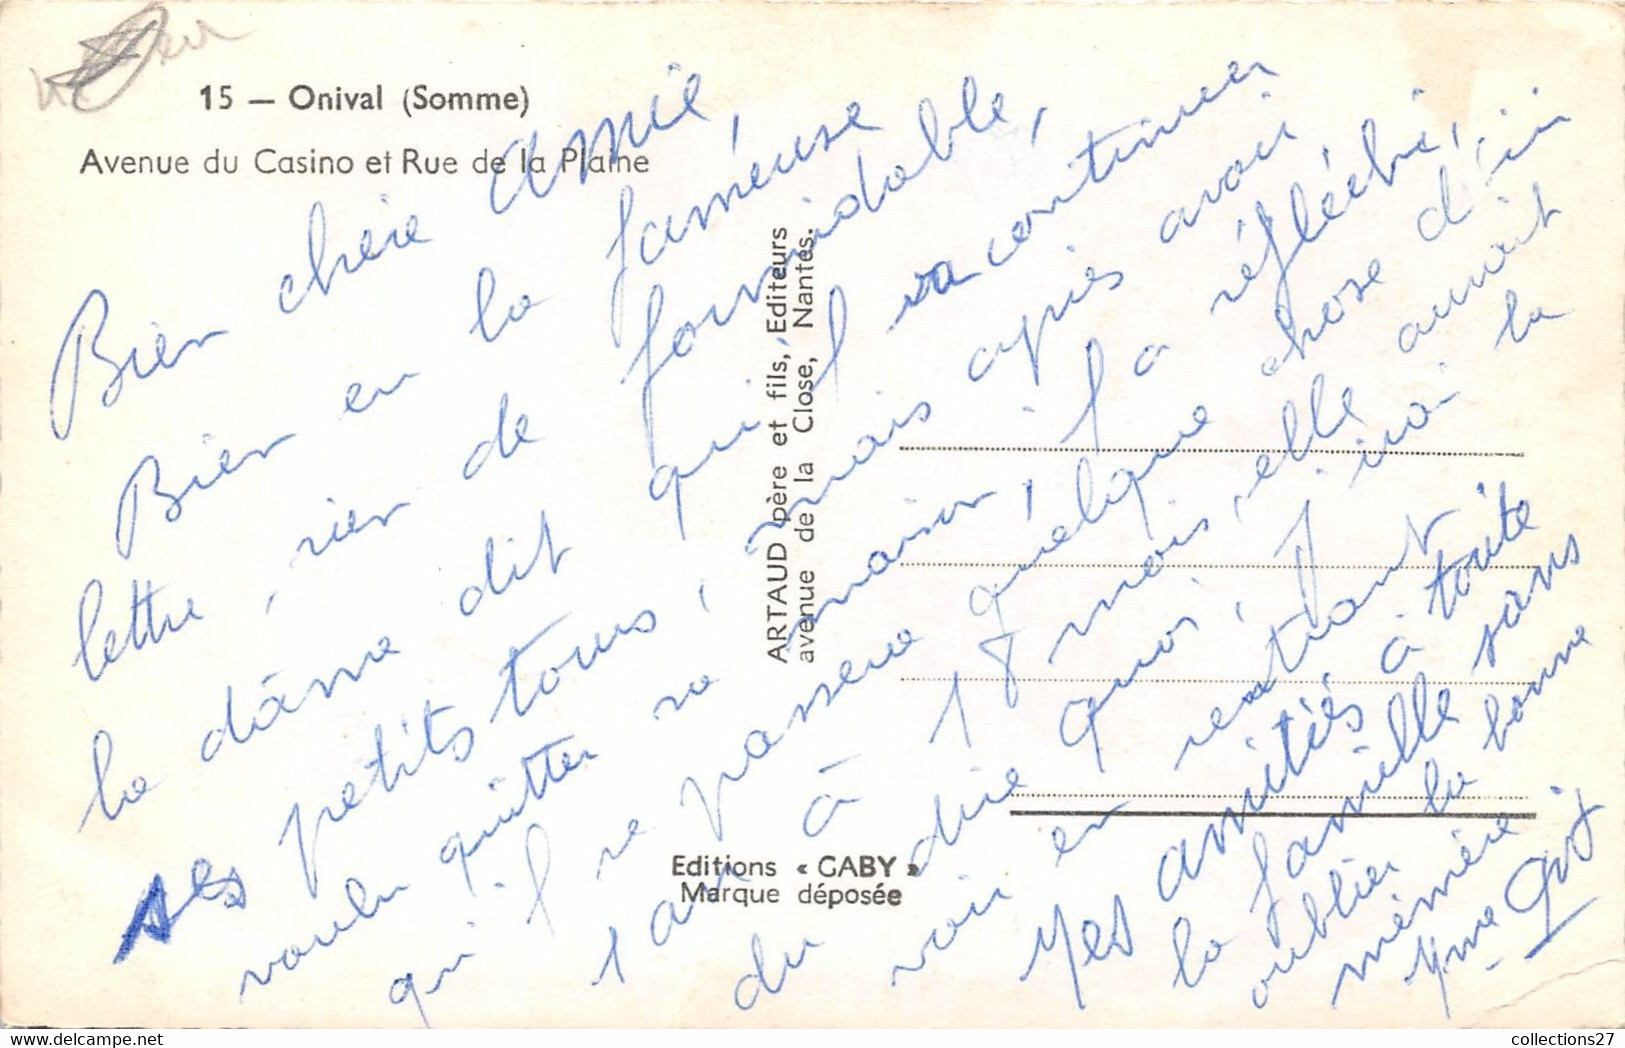 15 — Onival (Somme)
Avenue du Casino et Rue de la Plaine
Bien chère amie,
Bien eu la fameuse
lettre, rien de formidable,
la dâme dit qu'il va continuer
ses petits tours, mais après avoir
voulu quitter sa maison, il a réfléchi,
qu'il se passera quelque chose d'ici
1 an à 18 mois, elle aurait
du dire quoi, J'irai la
voir en rentrant
Mes amitiés à toute
la famille sans
oublier la bonne
mémère
Mme Gig
ARTAUD père et fils, Editeurs
avenue de la Close, Nantes.
Editions « GABY »
Marque déposée
collections27